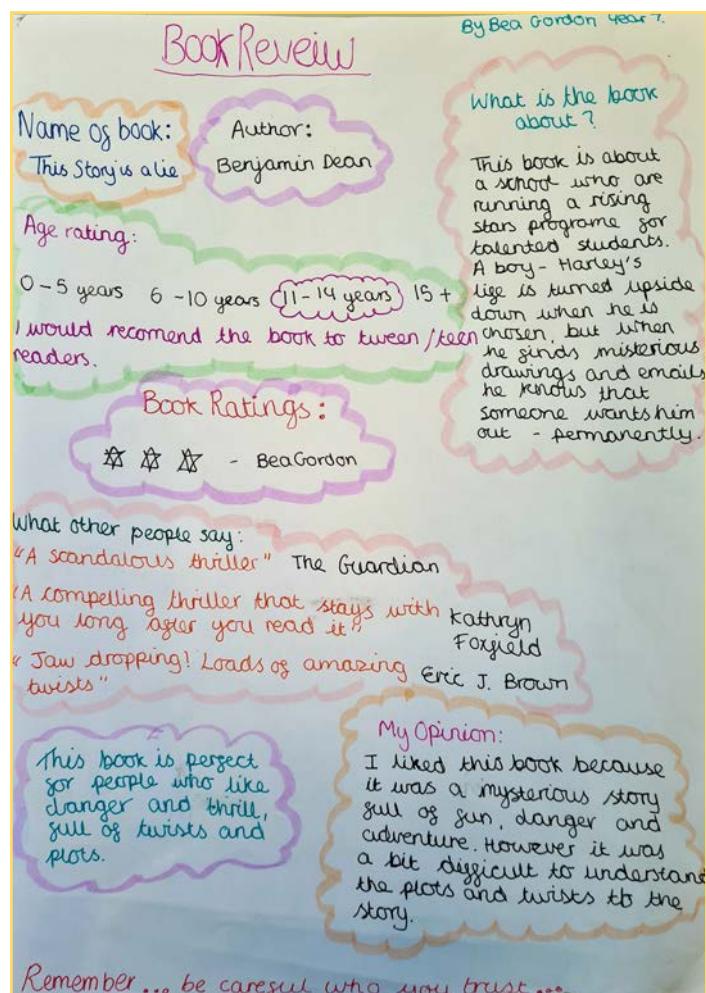 By Bea Gordon Year 7.
Book Reveiw
Name of book:
This Story is a lie
Author:
Benjamin Dean
What is the book
about?
This book is about
a school who are
running a rising
stars programe for
talented students.
A boy - Harley's
life is turned upside
down when he is
chosen, but when
he finds misterious
drawings and emails
he knows that
someone wants him
out - permanently.
Age rating:
0-5 years 6-10 years 11-14 years 15+
I would recomend the book to tween/teen
readers.
Book Ratings:
- Bea Gordon
What other people say:
"A scandalous thriller" The Guardian
"A compelling thriller that stays with
you long after you read it" Kathryn
Foxfield
"Jaw dropping! Loads of amazing
twists" Eric J. Brown
This book is perfect
for people who like
danger and thrill,
full of twists and
plots.
My Opinion:
I liked this book because
it was a mysterious story
full of fun, danger and
adventure. However it was
a bit difficult to understand
the plots and twists to the
story.
Remember... be careful who you trust...